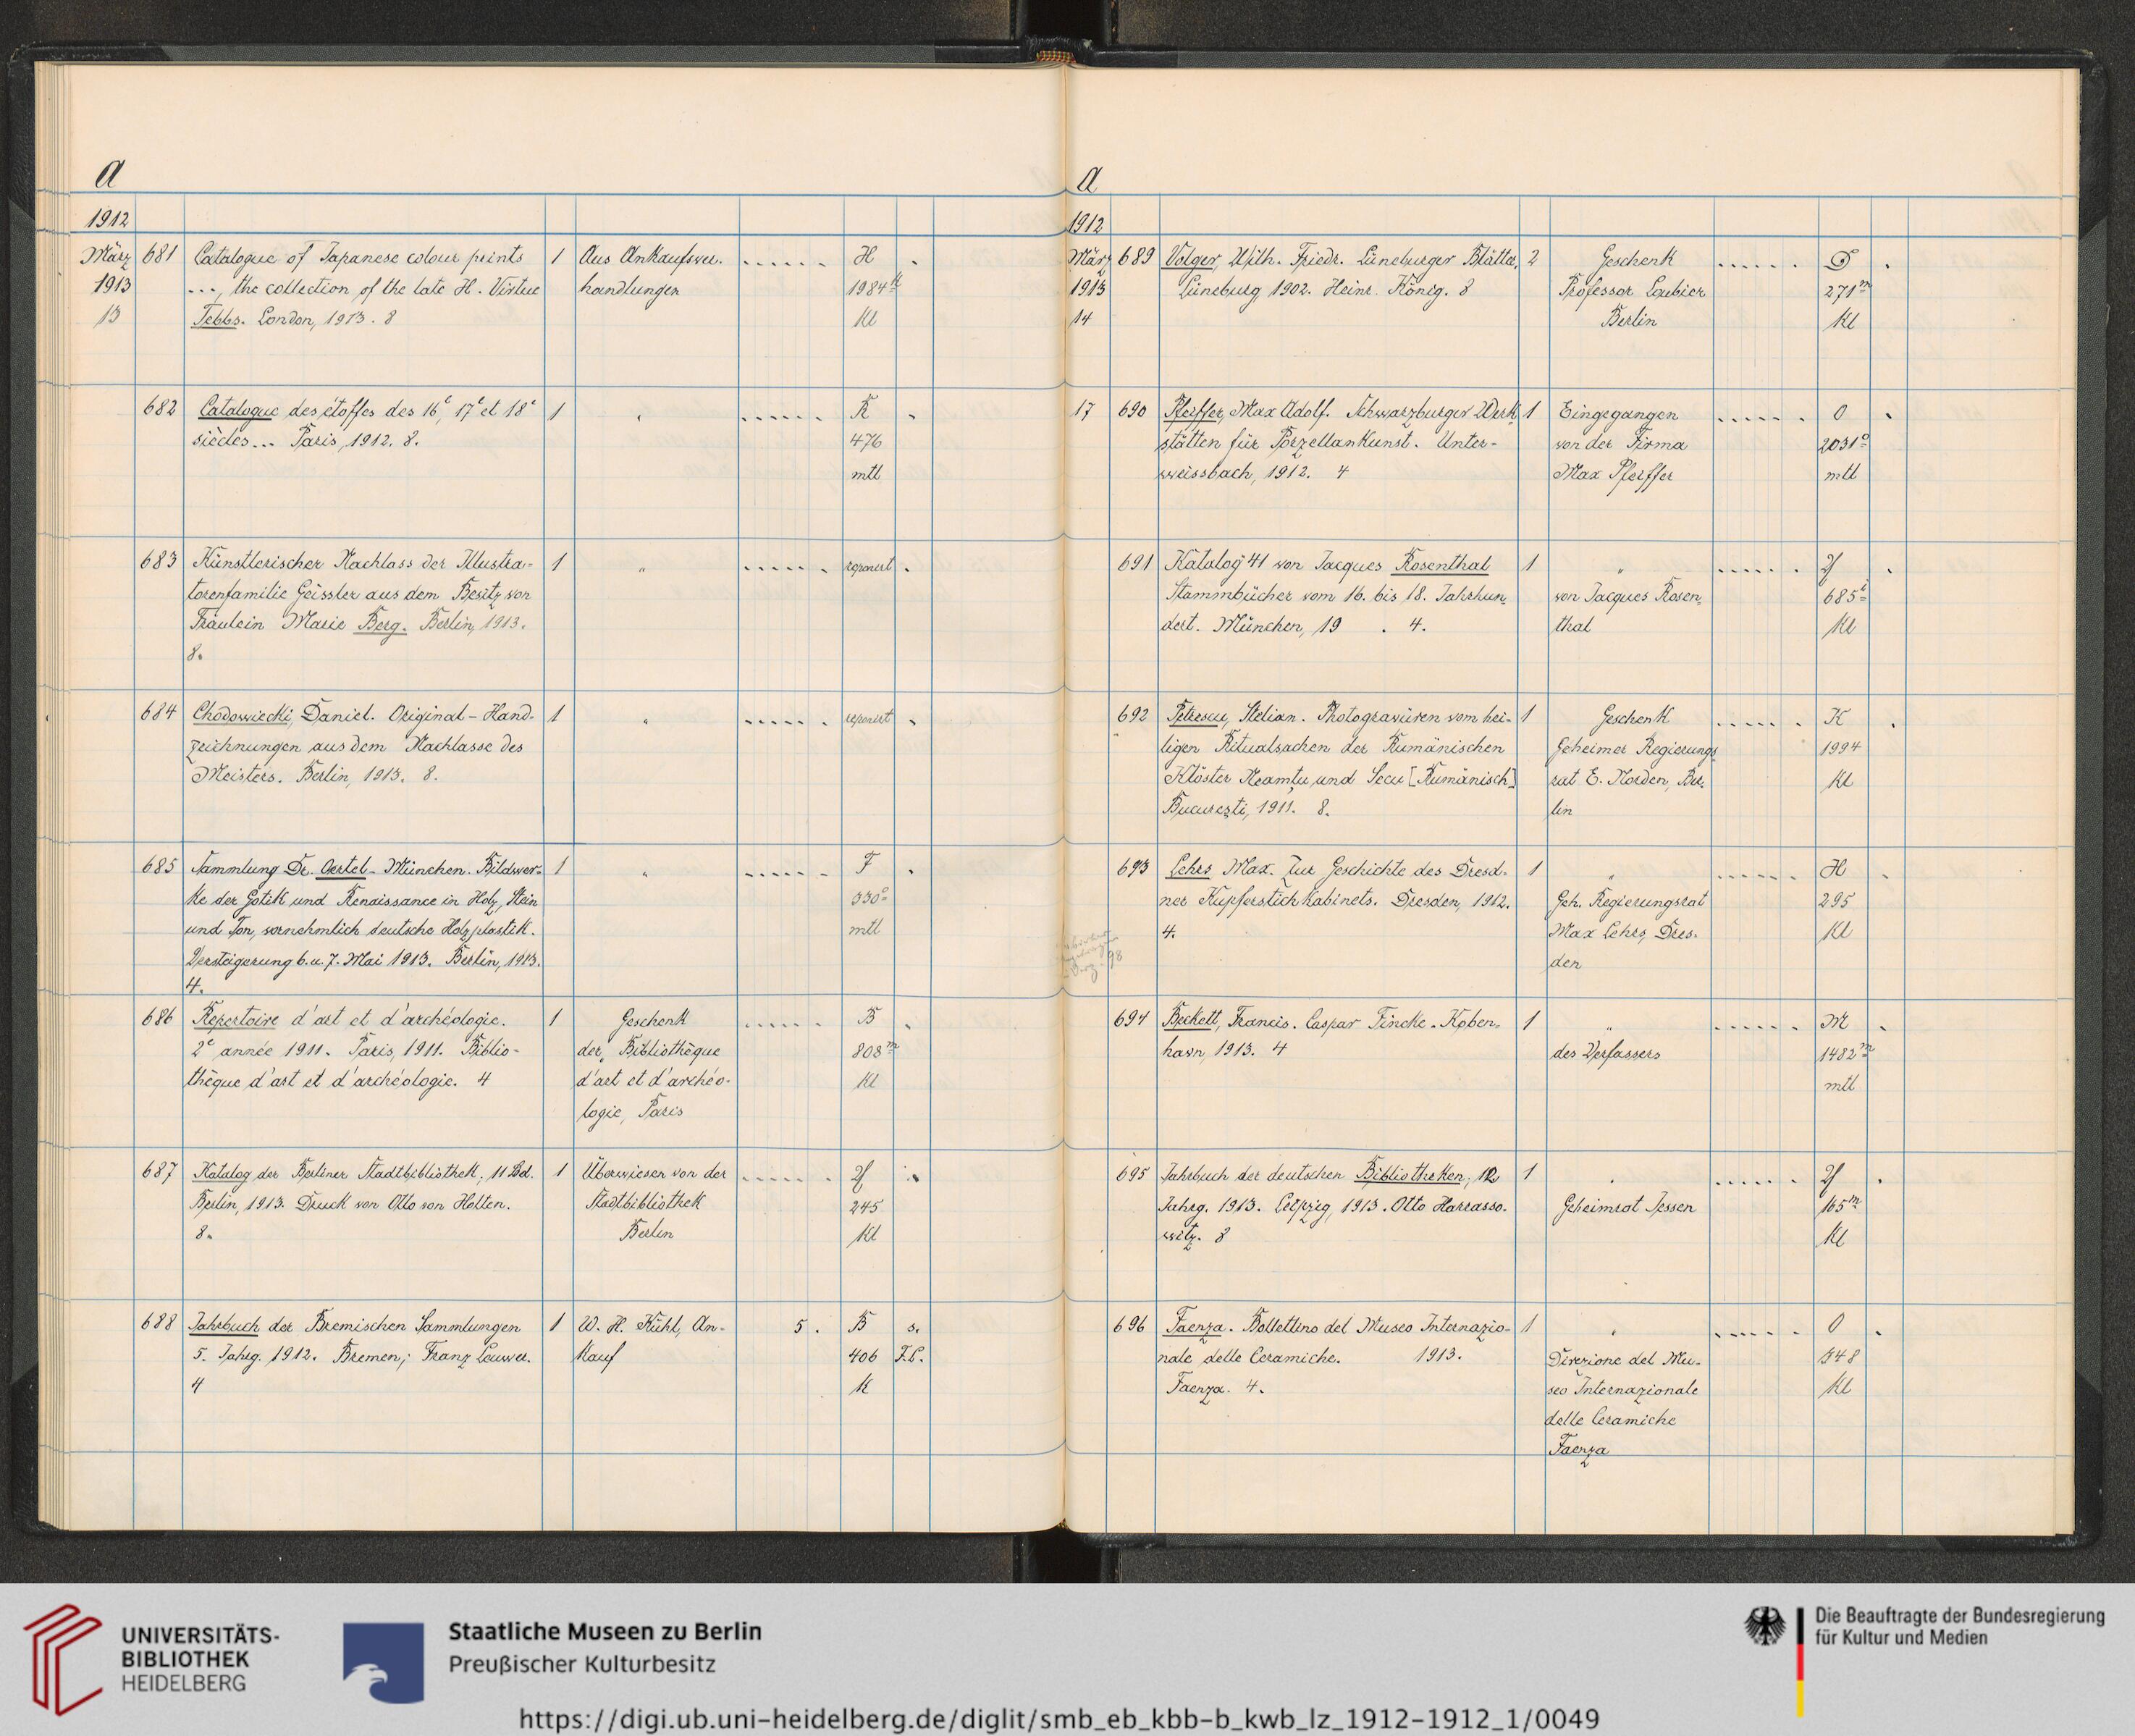 a
1912
März 681 Catalogue of Japanese colour prints 1 Aus Ankaufsver- H
1913 ..., the collection of the late H. Virtue handlungen 1984 k
13 Tebbs. London, 1913. 8 Kl
682 Catalogue des étoffes des 16e, 17e et 18e 1 " K
siècles... Paris, 1912. 8. 476
mtl
683 Künstlerischer Nachlass der Illustra- 1 " reponirt
torenfamilie Geissler aus dem Besitz von
Fräulein Marie Berg. Berlin, 1913.
8.
684 Chodowiecki, Daniel. Original-Hand- 1 " reponirt
zeichnungen aus dem Nachlasse des
Meisters. Berlin, 1913. 8.
685 Sammlung Dr. Oertel-München. Bildwer- 1 " F
ke der Gotik und Renaissance in Holz, Stein 330 c
und Ton, vornehmlich deutsche Holzplastik. mtl
Versteigerung 6. u. 7. Mai 1913. Berlin, 1913.
4.
686 Repertoire d'art et d'archéologie. 1 Geschenk B
2e année 1911. Paris, 1911. Biblio- der "Bibliothèque 808 m
thèque d'art et d'archéologie. 4 d'art et d'archéo- Kl
logie, Paris
687 Katalog der Berliner Stadtbibliothek; 11 Bd. 1 Überwiesen von der Zf
Berlin, 1913. Druck von Otto von Holten. Stadtbibliothek 245
8. Berlin Kl
688 Jahrbuch der Bremischen Sammlungen 1 W. H. Kühl, An- 5. B s.
5. Jahrg. 1912. Bremen; Franz Leuwer. kauf 406 J.L.
4 K
a
1912
März 689 Volger, Wilh. Friedr. Lüneburger Blätter, 2 Geschenk D
1913 Lüneburg 1902. Heinr. König. 8 Professor Loubier 271 m
14 Berlin Kl
17 690 Pfeiffer, Max Adolf. Schwarzburger Werk- 1 Eingegangen O
stätten für Porzellankunst. Unter- von der Firma 2031 c
weissbach, 1912. 4 Max Pfeiffer mtl
691 Katalog 41 von Jacques Rosenthal 1 " Zf
Stammbücher vom 16. bis 18. Jahrhun- von Jacques Rosen- 685 i
dert. München, 19 . 4. thal Kl
692 Petrescu, Stelian. Photogravüren vom hei- 1 Geschenk K
ligen Ritualsachen der Rumänischen Geheimer Regierungs- 1994
Klöster Neamțu und Secu [Rumänisch] rat E. Norden, Ber- Kl
București, 1911. 8. lin
693 Lehrs Max. Zur Geschichte des Dresd- 1 " H
ner Kupferstichkabinets. Dresden, 1912. Geh. Regierungsrat 295
4. Max Lehrs, Dres- Kl
den
98
694 Beckett, Francis. Caspar Fincke. Koben- 1 " M
havn, 1913. 4 des Verfassers 1482 m
mtl
695 Jahrbuch der deutschen Bibliotheken; 1 " Zf
Jahrg. 1913. Leipzig, 1913. Otto Harrasso- Geheimrat Jessen 165 m
witz. 8 Kl
696 Faenza. Bollettino del Museo Internazio- 1 " O
nale delle Ceramiche. 1913. Direzione del Mu- 548
Faenza. 4. seo Internazionale Kl
delle Ceramiche
Faenza
UNIVERSITÄTS-
BIBLIOTHEK
HEIDELBERG
Staatliche Museen zu Berlin
Preußischer Kulturbesitz
Die Beauftragte der Bundesregierung
für Kultur und Medien
https://digi.ub.uni-heidelberg.de/diglit/smb_eb_kbb-b_kwb_lz_1912-1912_1/0049